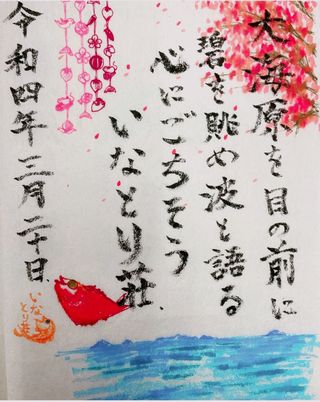 大海原を目の前に
碧を眺め波と語る
心にごちそう
いなとり荘、
令和四年三月二十日
いな
とり荘